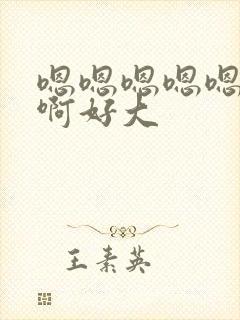 嗯嗯嗯嗯嗯
啊好大
王素英